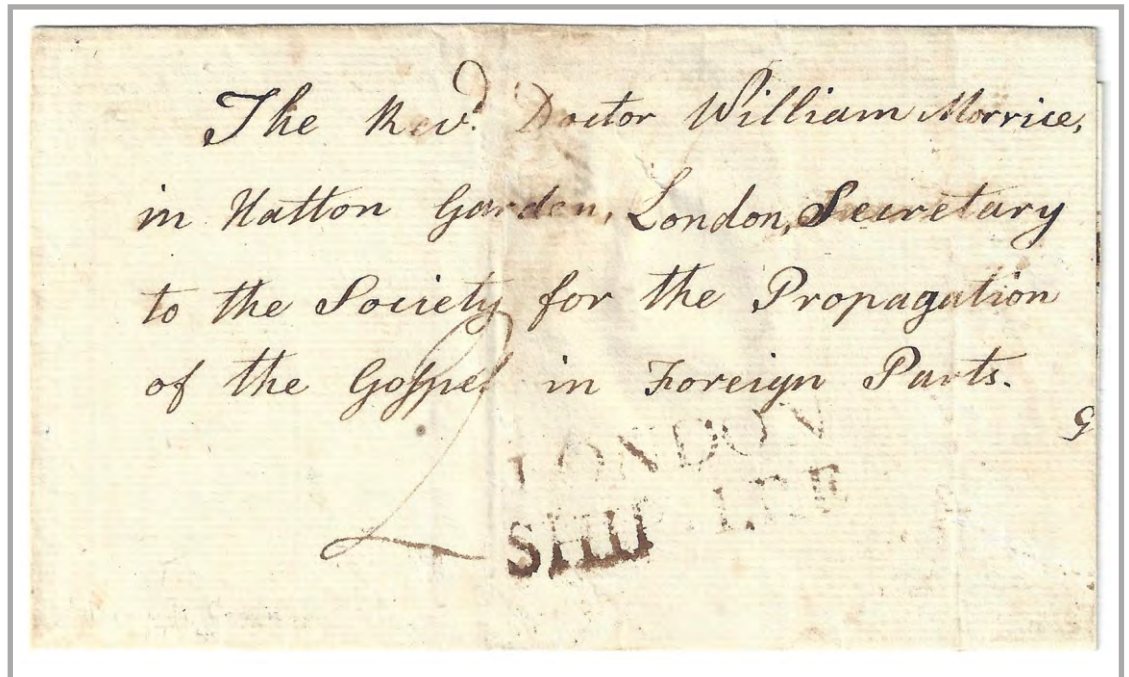 The Revd. Doctor William Morrice,
in Hatton Garden, London, Secretary
to the Society for the Propagation
of the Gospel in Foreign Parts.
G
2
LONDON
SHIP-LRE